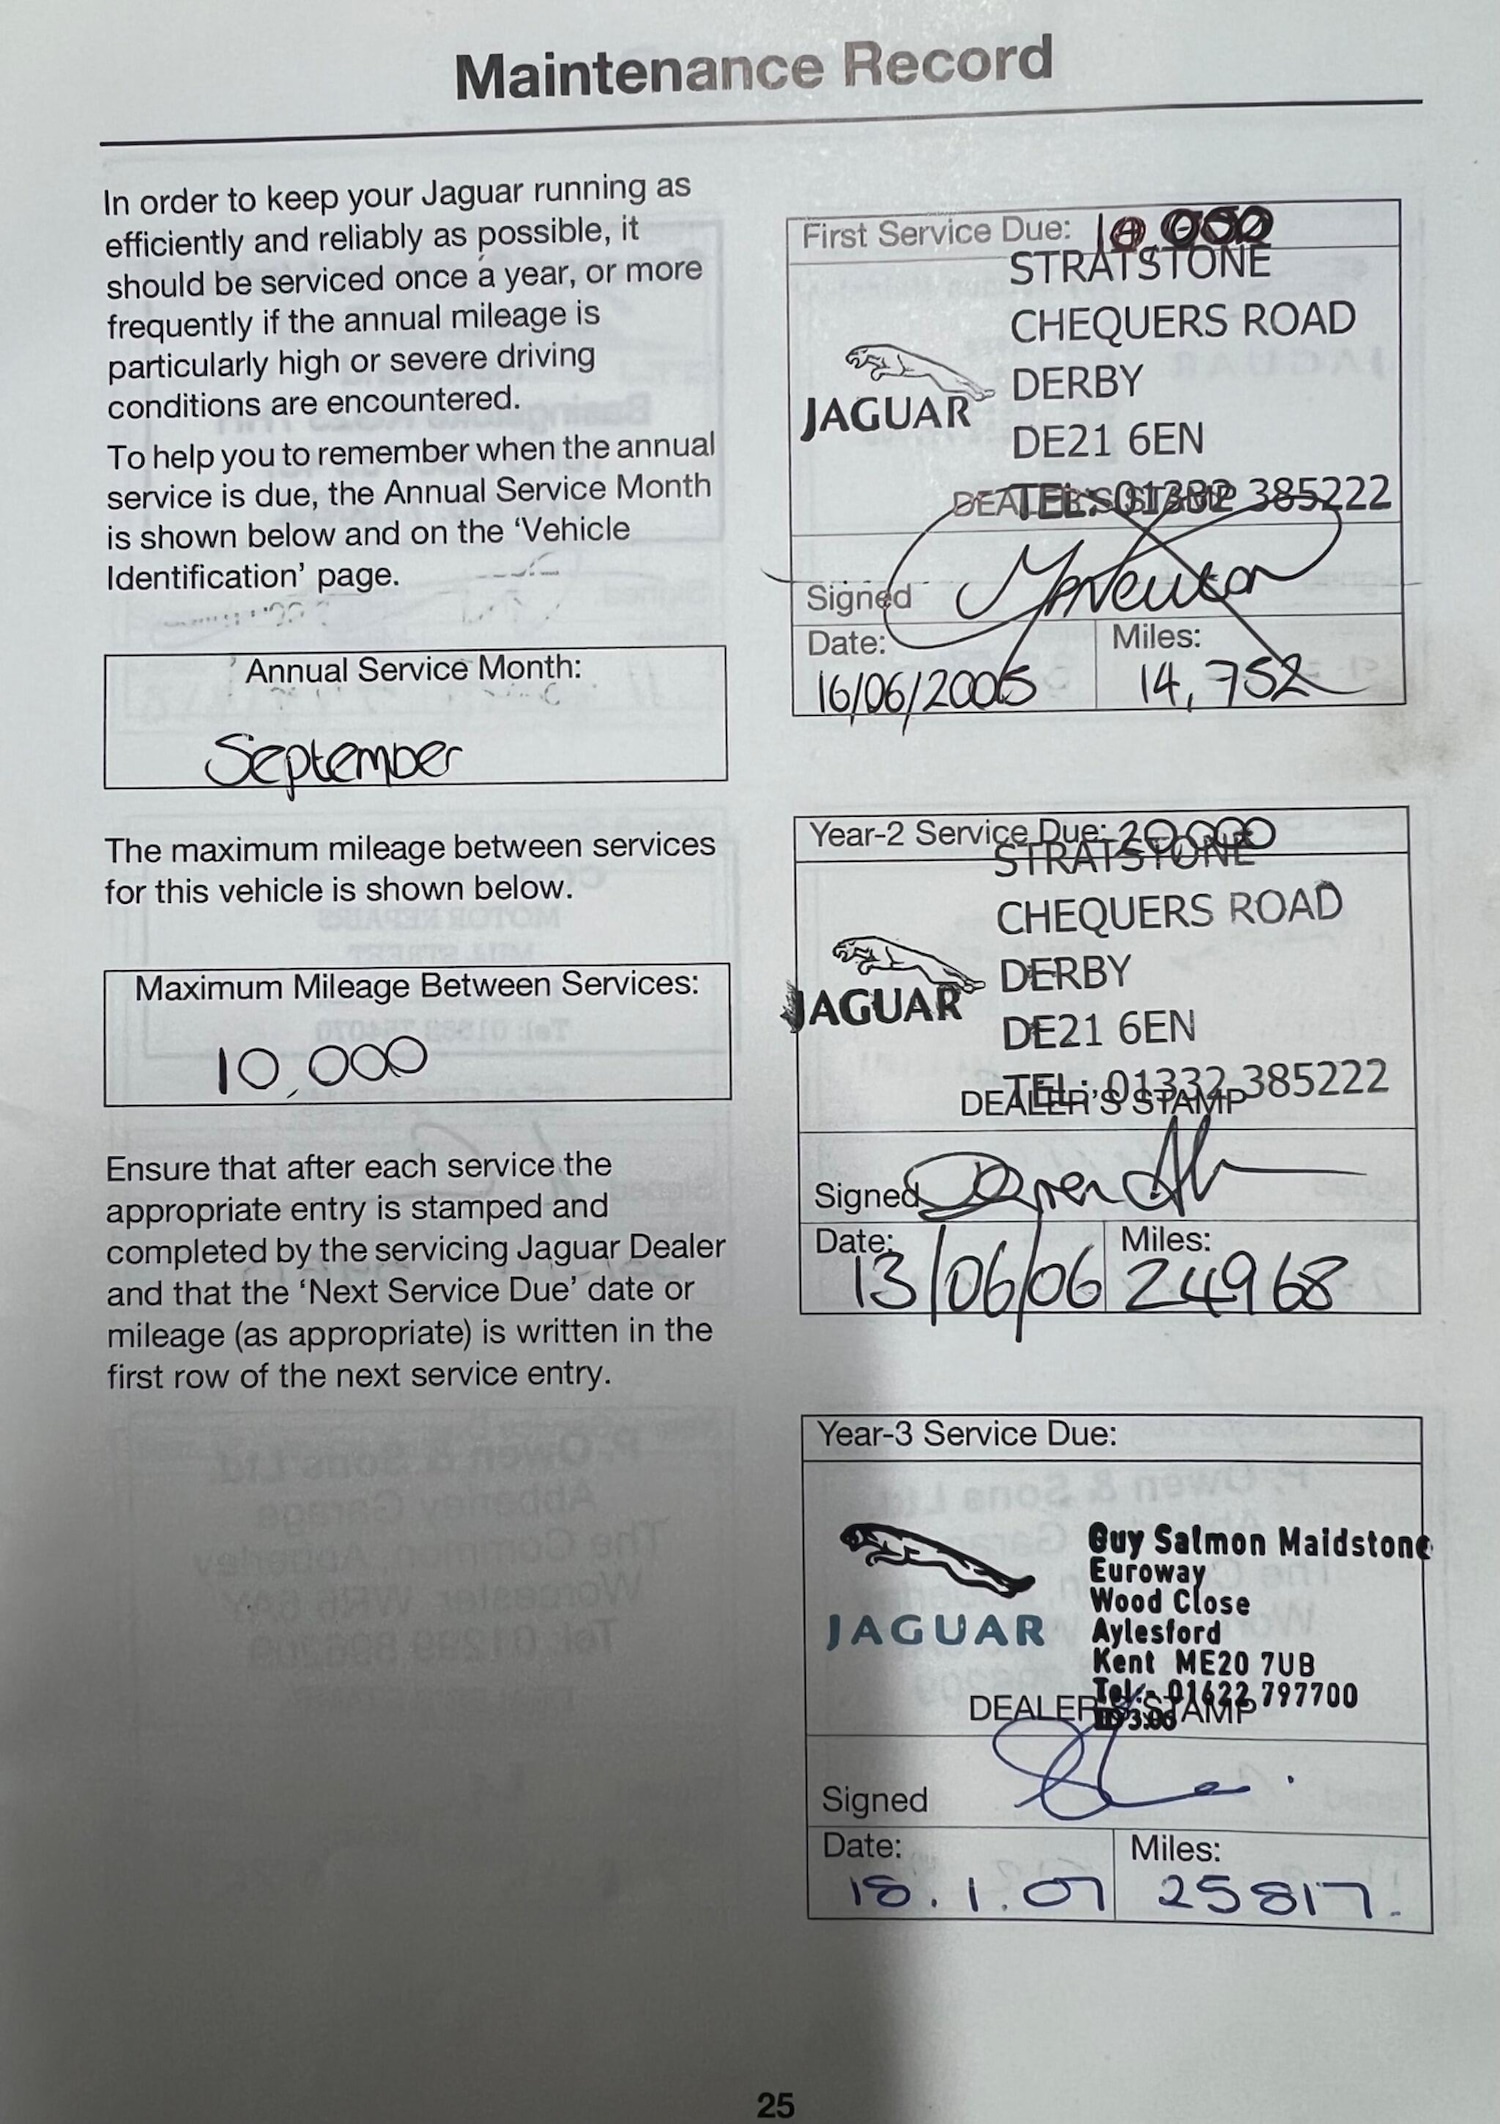 Maintenance Record
In order to keep your Jaguar running as
efficiently and reliably as possible, it
should be serviced once a year, or more
frequently if the annual mileage is
particularly high or severe driving
conditions are encountered.
To help you to remember when the annual
service is due, the Annual Service Month
is shown below and on the ‘Vehicle
Identification’ page.
Annual Service Month:
September
The maximum mileage between services
for this vehicle is shown below.
Maximum Mileage Between Services:
10,000
Ensure that after each service the
appropriate entry is stamped and
completed by the servicing Jaguar Dealer
and that the ‘Next Service Due’ date or
mileage (as appropriate) is written in the
first row of the next service entry.
First Service Due: 10,000
STRATSTONE
CHEQUERS ROAD
DERBY
JAGUAR
DE21 6EN
TEL: 01332 385222
DEALER'S STAMP
Signed
Date: Miles:
16/06/2005 14,752
Year-2 Service Due: 20,000
STRATSTONE
CHEQUERS ROAD
DERBY
JAGUAR
DE21 6EN
TEL: 01332 385222
DEALER’S STAMP
Signed
Date: Miles:
13/06/06 24968
Year-3 Service Due:
Guy Salmon Maidstone
Euroway
Wood Close
JAGUAR
Aylesford
Kent ME20 7UB
Tel:- 01622 797700
DEALER'S STAMP
Signed
Date: Miles:
18.1.07 25817.
25